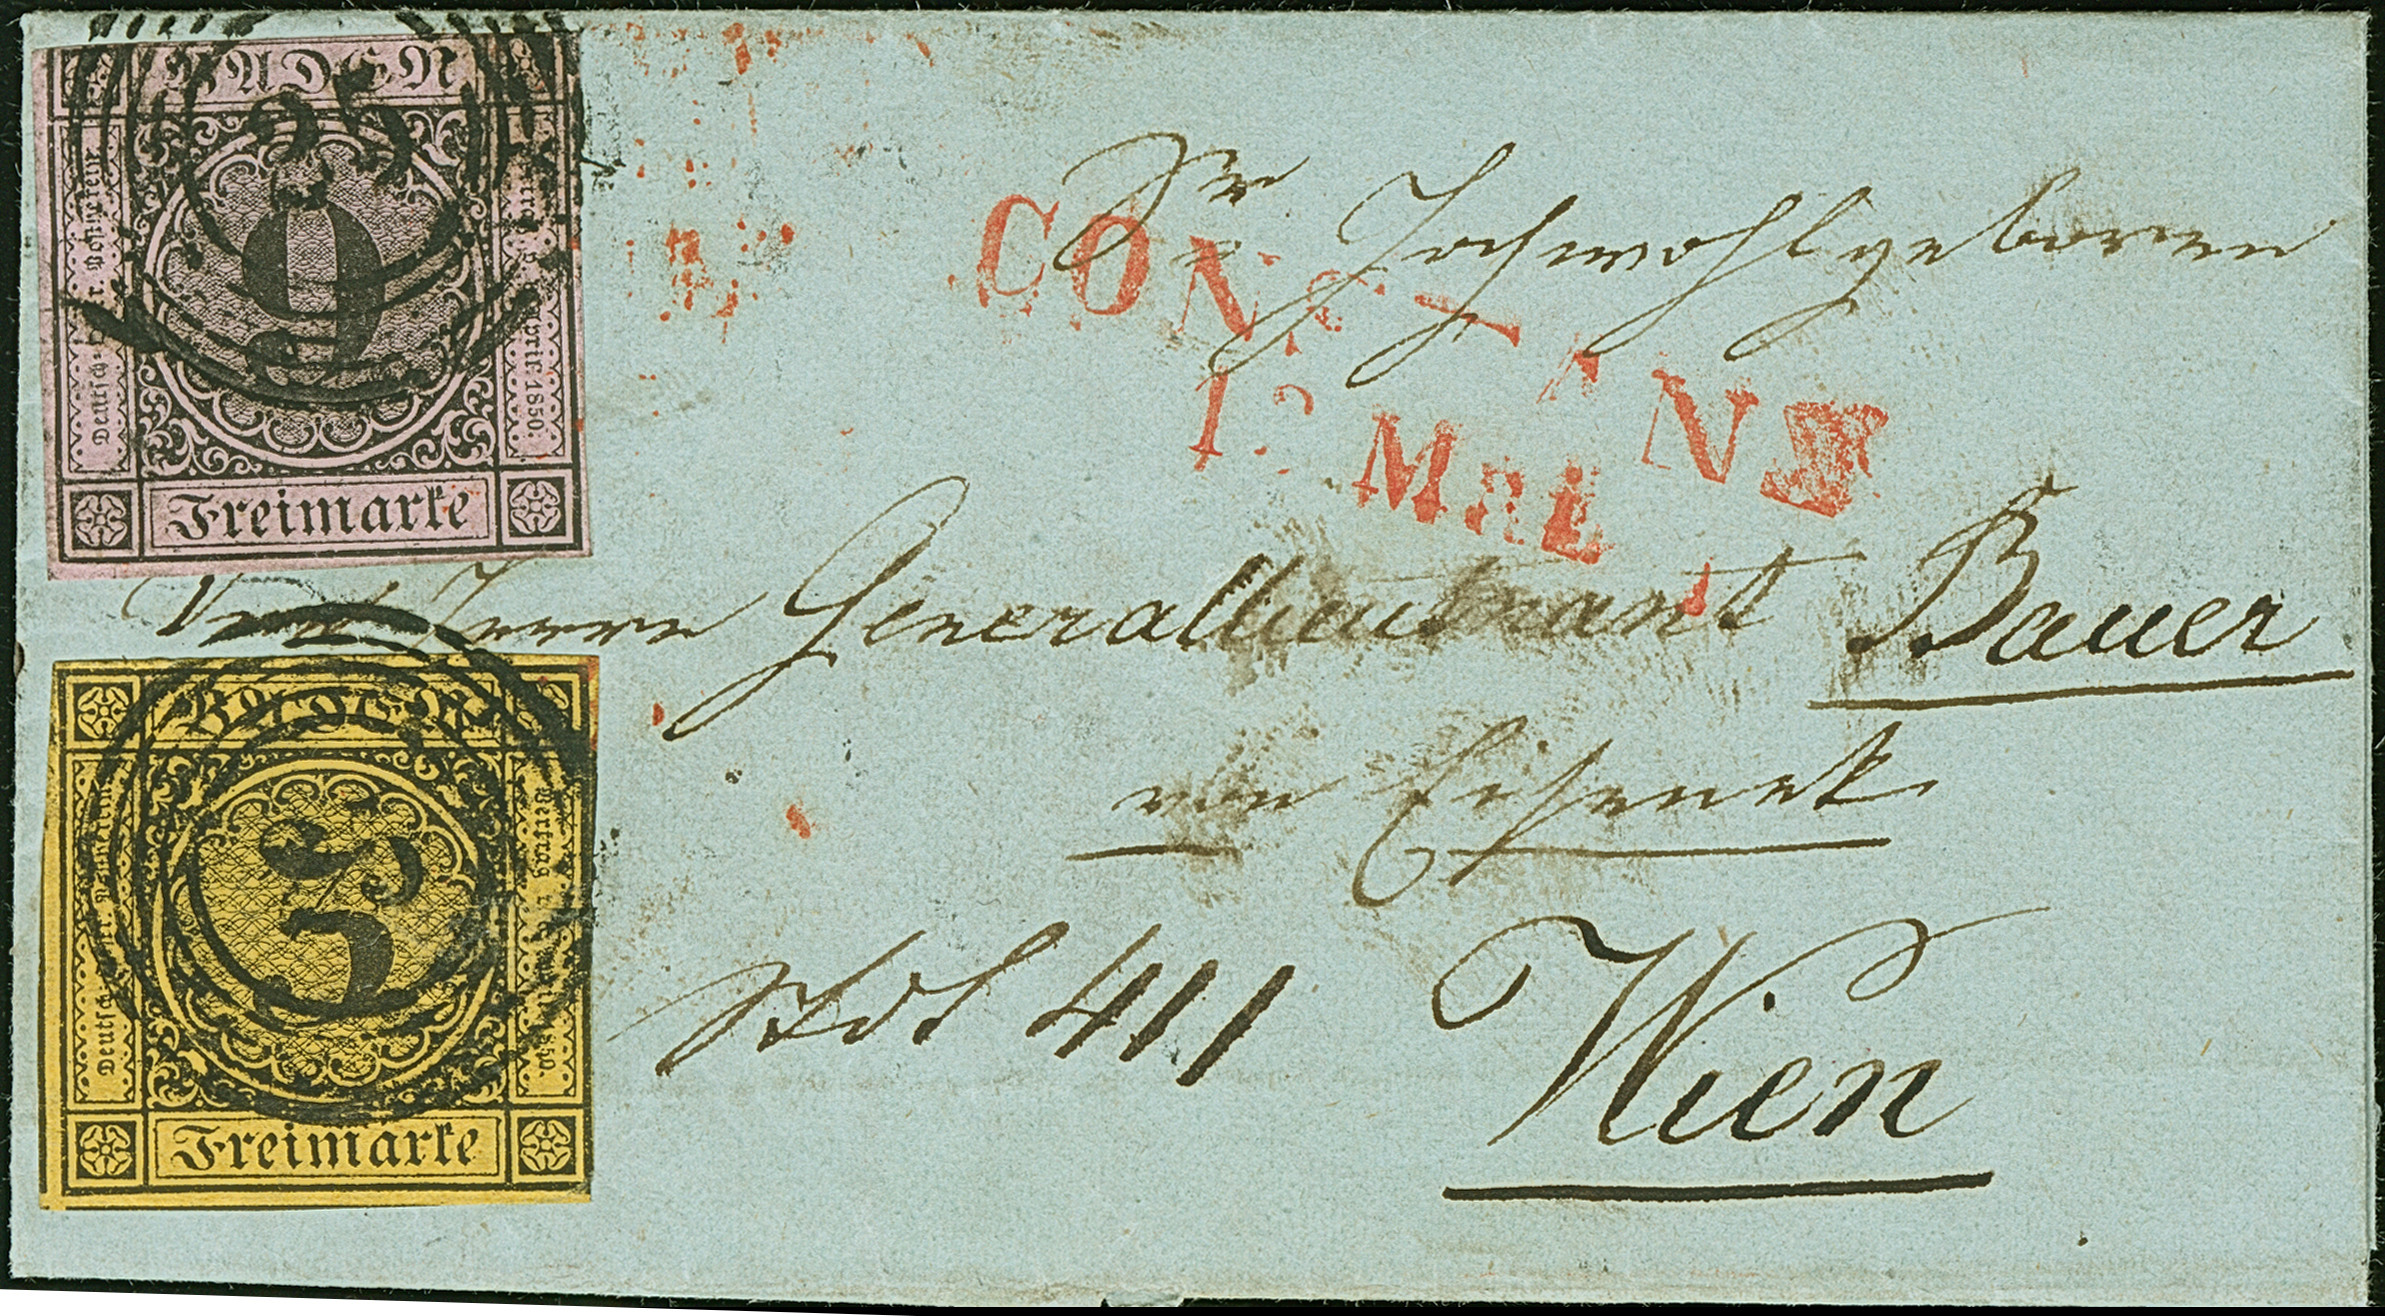 BADEN
Deutsch-Östr. Postverein
Vertrag v. 6. April 1850.
9
Freimarke
Sr Hochwohlgeboren
CONSTANZ
12 MRZ
Dem Herrn Generallieutenant Bauer
von Eisenek
BADEN
Deutsch-Östr. Postverein
Vertrag v. 6. April 1850.
3
Freimarke
411 Wien